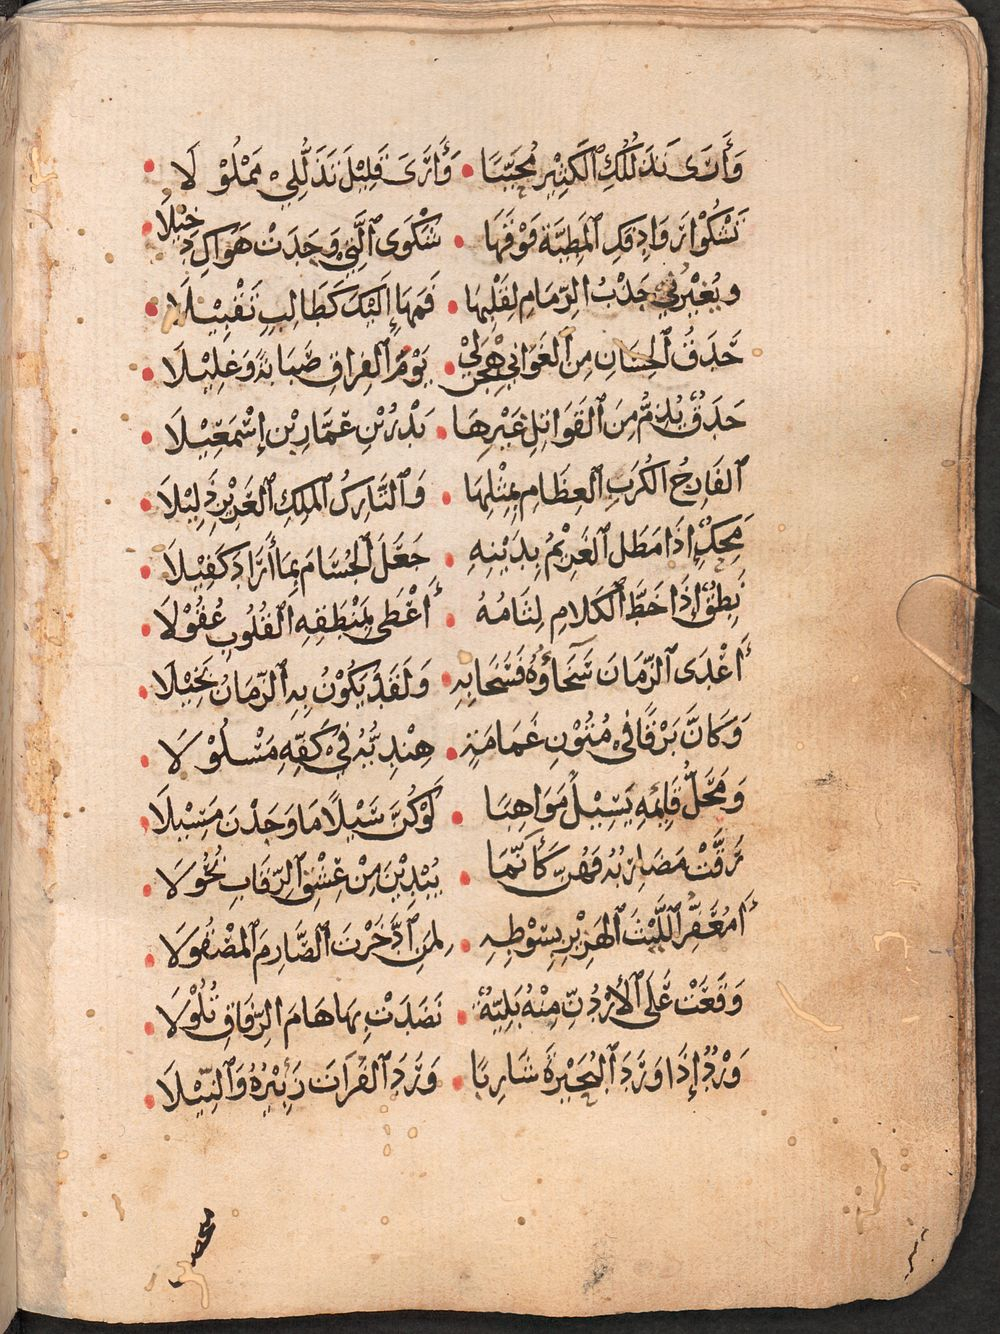 وَأَرَى تَدَلُّلَكِ الكَثِيْرَ مُحَبَّبًا • وَأَرَى قَلِيْلَ تَذَلُّلِي مَمْلُوْلَا
تَشْكُوْا رَوَادِفَكِ المَطِيَّةَ فَوْقَهَا • شَكْوَى الَّتِي وَجَدَتْ هَوَاكِ دَخِيْلَا
وَيُغِيْرُنِي جَذْبُ الزِّمَامِ لِقَلْبِهَا • فَمَهَا إِلَيْكَ كَطَالِبٍ تَقْبِيْلَا
حَدَقُ الحِسَانِ مِنَ الغَوَانِي هِجْنَ لِي • يَوْمَ الفِرَاقِ صَبَابَةً وَغَلِيْلَا
حَدَقٌ يُذِمُّ مِنَ القَوَاتِلِ غَيْرِهَا • بَدْرُ بْنِ عَمَّارِ بْنِ إِسْمَعِيْلَا
الفَارِجُ الكُرَبِ العِظَامِ بِمِثْلِهَا • وَالتَّارِكُ المَلِكِ العَزِيْزِ ذَلِيْلَا
مَحِكٌ إِذَا مَطَلَ الغَرِيْمُ بِدَيْنِهِ • جَعَلَ الحُسَامَ بِمَا أَرَادَ كَفِيْلَا
نَطِقٌ إِذَا حَطَّ الكَلَامِ لِثَامُهُ • أَعْطَى بِمَنْطِقِهِ القُلُوبِ عُقُوْلَا
أَعْدَى الزَّمَانَ سَخَاؤُهُ فَسَخَا بِهِ • وَلَقَدْ يَكُوْنُ بِهِ الزَّمَانُ بَخِيْلَا
وَكَانَّ بَرْقًا فِي مُتُوْنِ غَمَامَةٍ • هِنْدِيُّهُ فِي كَفِّهِ مَسْلُوْلَا
وَمَحَلُّ قَائِمِهِ يَسِيْلُ مَوَاهِبًا • لَوْ كُنَّ سَيْلًا مَا وَجَدْنَ مَسِيْلَا
رَقَّتْ مَضَارِبُهُ فَهُنَّ كَأَنَّمَا • يُبْدِيْنَ مِنْ عِشْقِ الرِّقَابِ نُحُوْلَا
أَمُعَفِّرَ اللَّيْثَ الهِزَبْرِ بِسَوْطِهِ • لِمَنِ ادَّخَرْتَ الصَّارِمَ المَصْقُوْلَا
وَقَعَتْ عَلَى الأُرْدُنِّ مِنْهُ بَلِيَّةٌ • نَضَدَتْ بِهَا هَامَ الرِّفَاقِ تُلُوْلَا
وَرْدٌ إِذَا وَرَدَ البُحَيْرَةَ شَارِبًا • وَرَدَ الفُرَاتَ زَئِيْرُهُ وَالنِّيْلَا